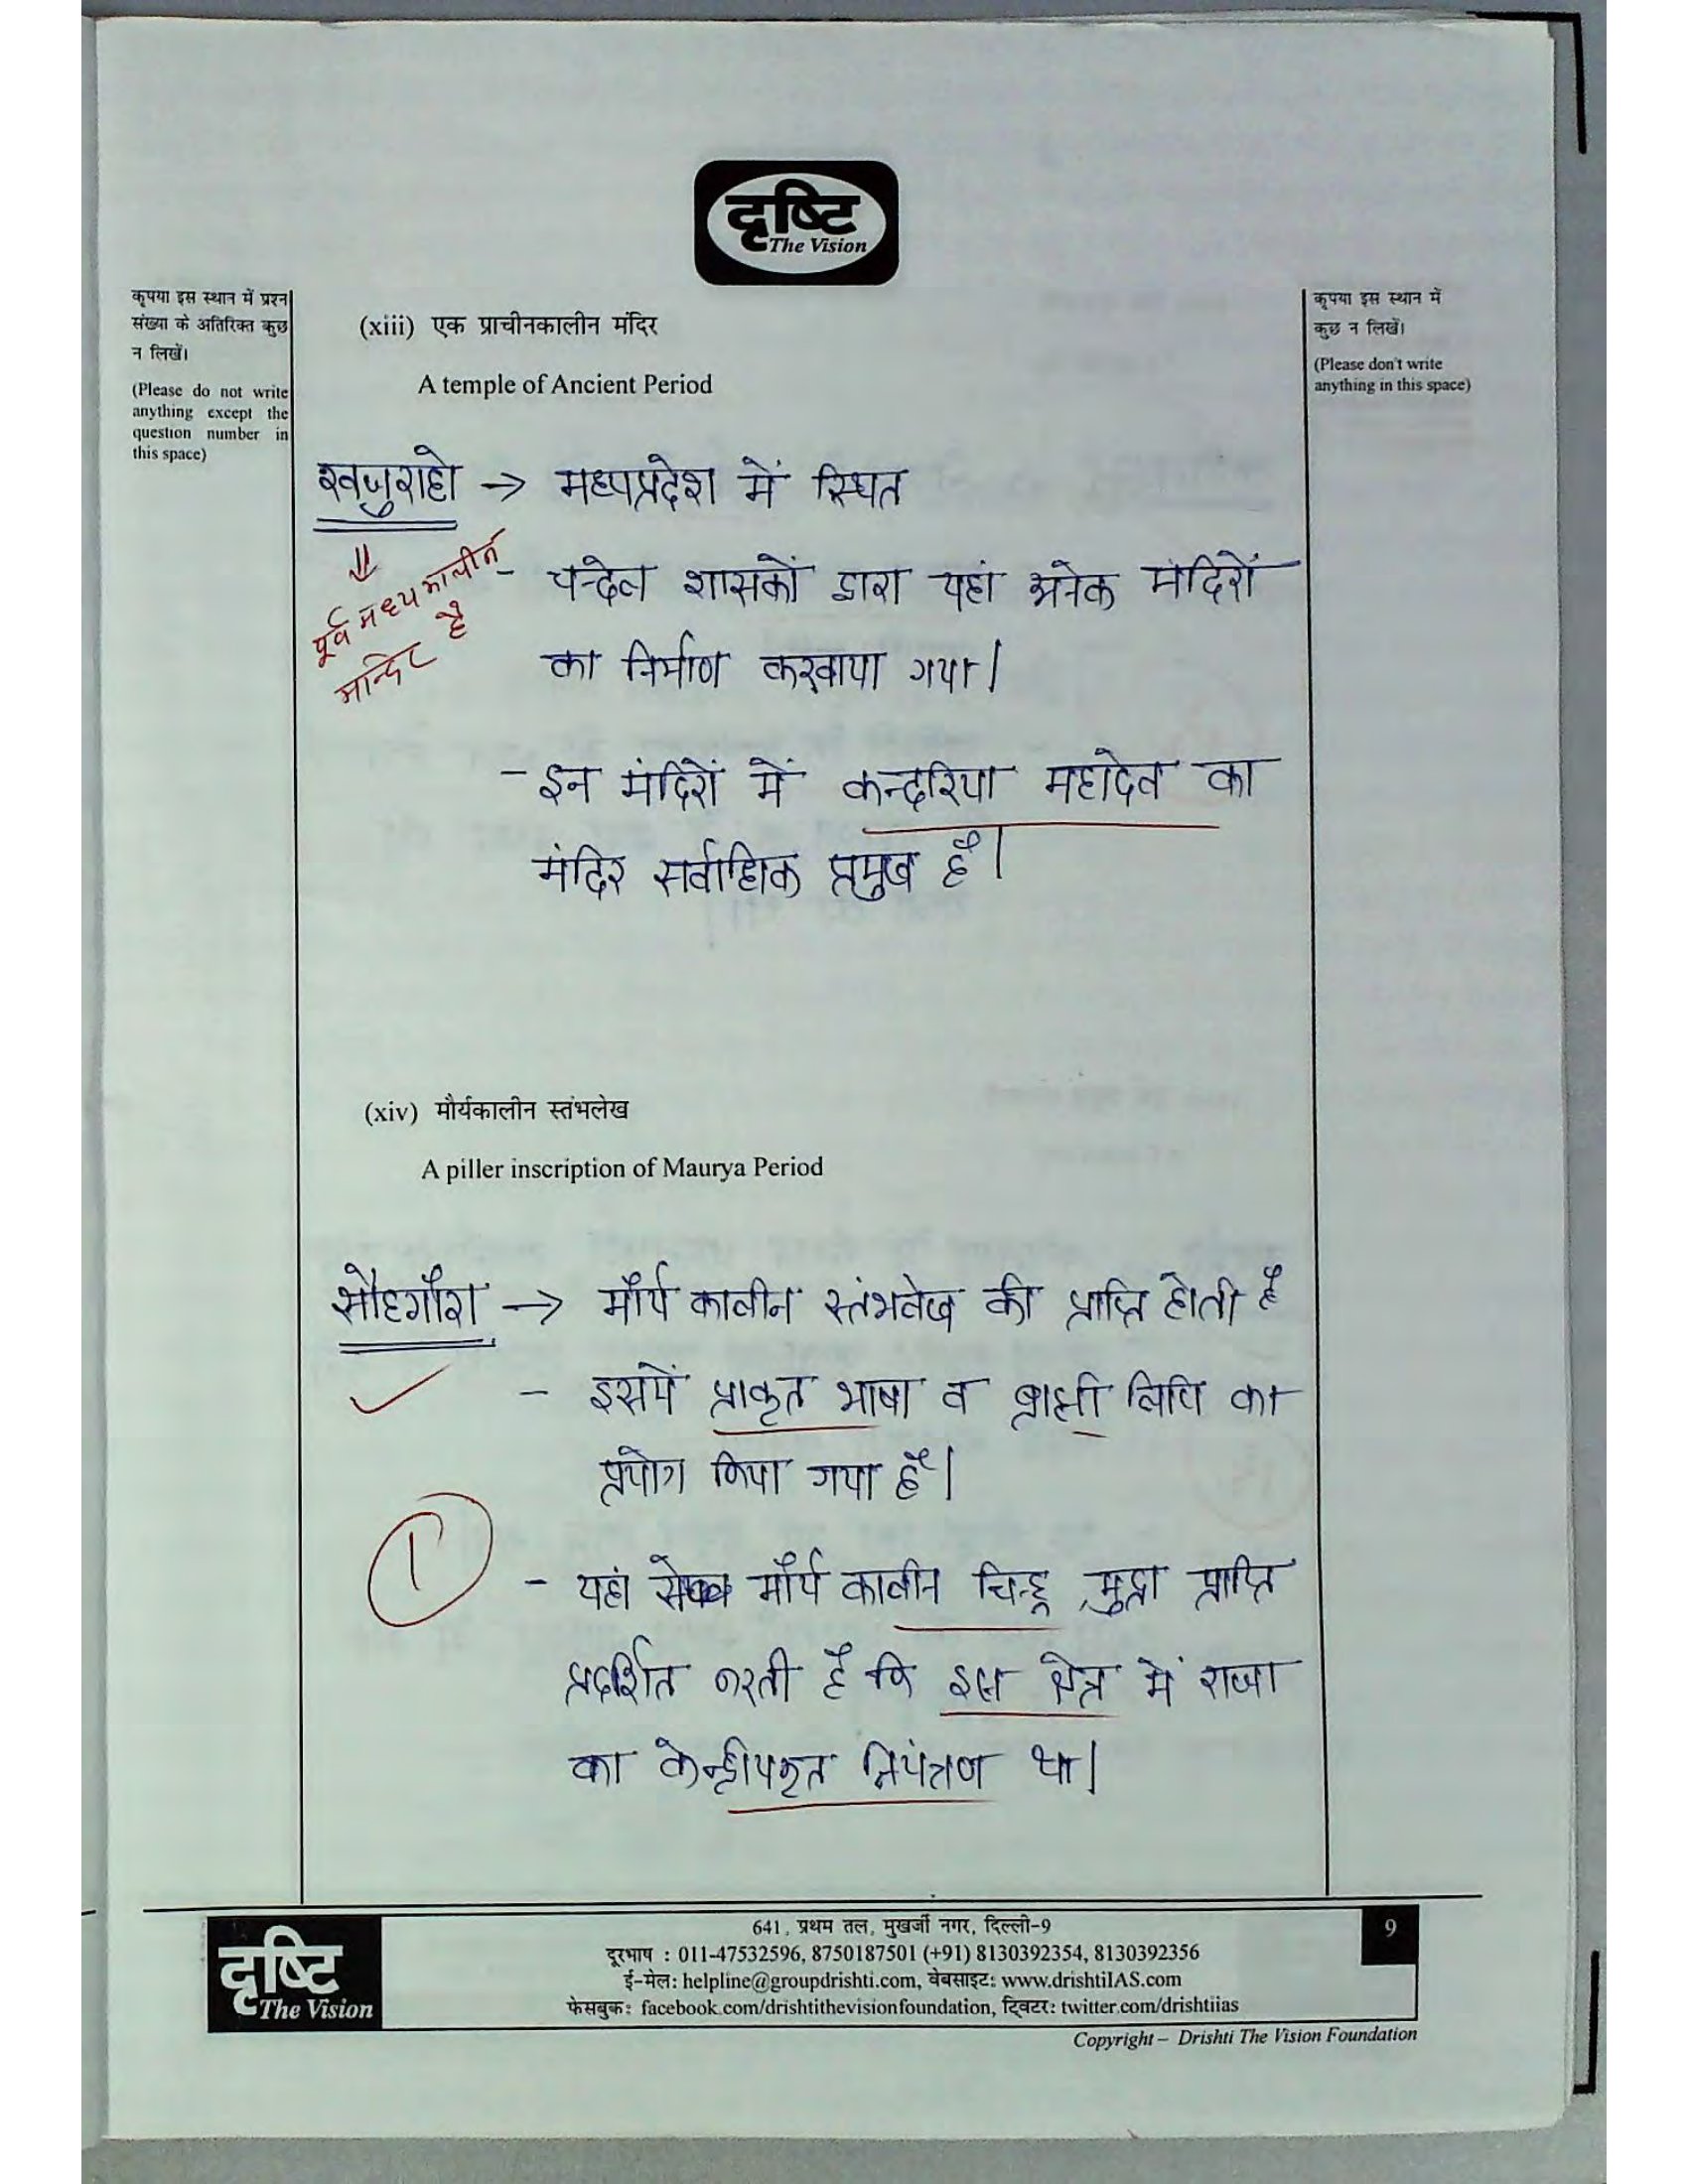 दृष्टि
The Vision
कृपया इस स्थान में प्रश्न
संख्या के अतिरिक्त कुछ
न लिखें।
(Please do not write
anything except the
question number in
this space)
कृपया इस स्थान में
कुछ न लिखें।
(Please don't write
anything in this space)
(xiii) एक प्राचीनकालीन मंदिर
A temple of Ancient Period
खजुराहो → मध्यप्रदेश में स्थित
⇓
पूर्व मध्यकालीन
मन्दिर है
- चन्देल शासकों द्वारा यहां अनेक मंदिरों
का निर्माण करवाया गया।
- इन मंदिरों में कन्दरिया महादेव का
मंदिर सर्वाधिक प्रमुख है।
(xiv) मौर्यकालीन स्तंभलेख
A piller inscription of Maurya Period
सौहगौरा → मौर्य कालीन स्तंभलेख की प्राप्ति होती है
- इसमें प्राकृत भाषा व ब्राह्मी लिपि का
प्रयोग किया गया है।
1
- यहां से मौर्य कालीन चिन्ह, मुद्रा प्राप्ति
प्रदर्शित करती है कि इस क्षेत्र में राजा
का केन्द्रीयकृत नियंत्रण था।
दृष्टि
The Vision
641, प्रथम तल, मुखर्जी नगर, दिल्ली-9
दूरभाष : 011-47532596, 8750187501 (+91) 8130392354, 8130392356
ई-मेल: helpline@groupdrishti.com, वेबसाइट: www.drishtiIAS.com
फेसबुक: facebook.com/drishtithevisionfoundation, ट्विटर: twitter.com/drishtiias
9
Copyright – Drishti The Vision Foundation